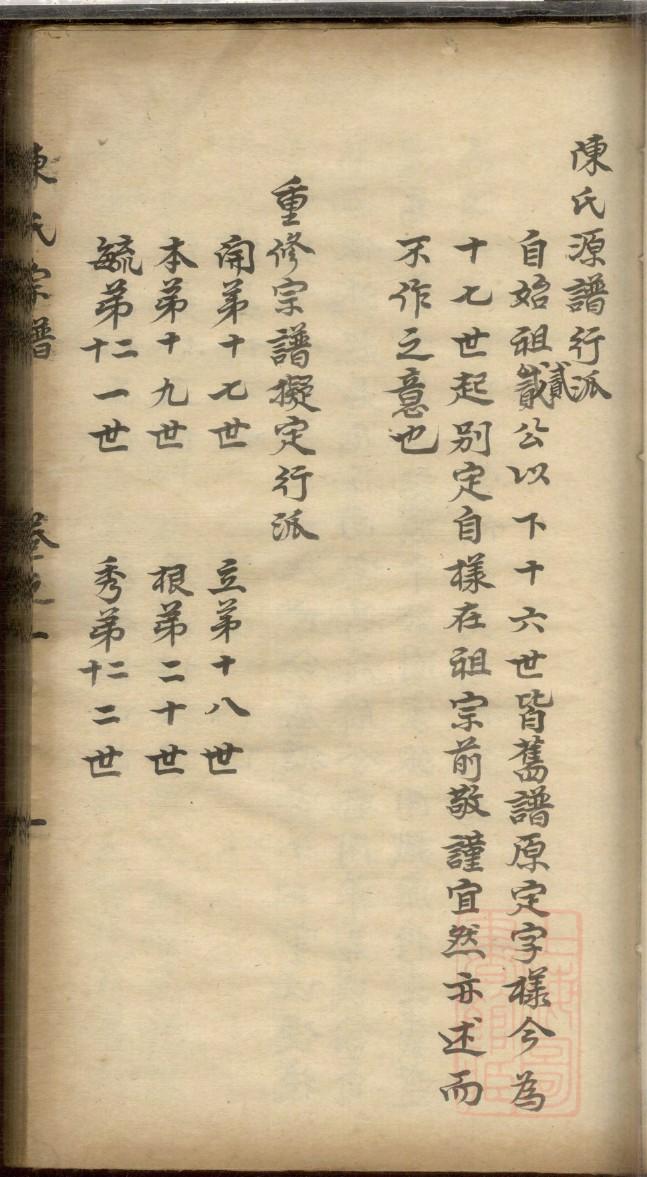 陳氏源譜行派
自始祖貳貳公以下十六世皆舊譜原定字樣今為
十七世起別定自樣在祖宗前敬謹宜然亦述而
不作之意也
重修宗譜擬定行派
開第十七世 立第十八世
本第十九世 根第二十世
毓第二十一世 秀第二十二世
陳氏宗譜 卷之一 一